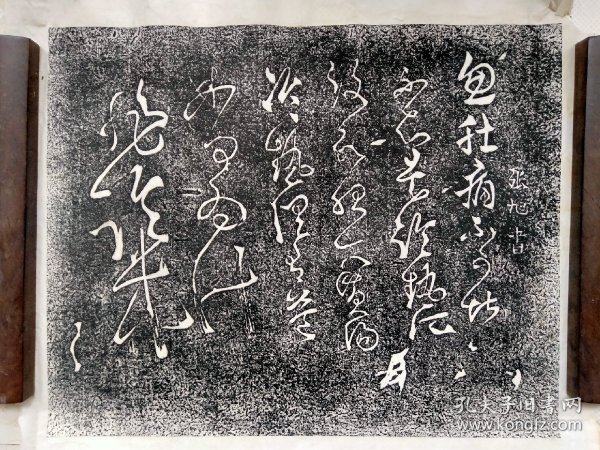 張旭書
忽肚痛不可堪
不知是冷熱所
致欲服大黃湯
冷熱俱有益
如何為計
非臨床
孔夫子旧书网
www.kongfz.com